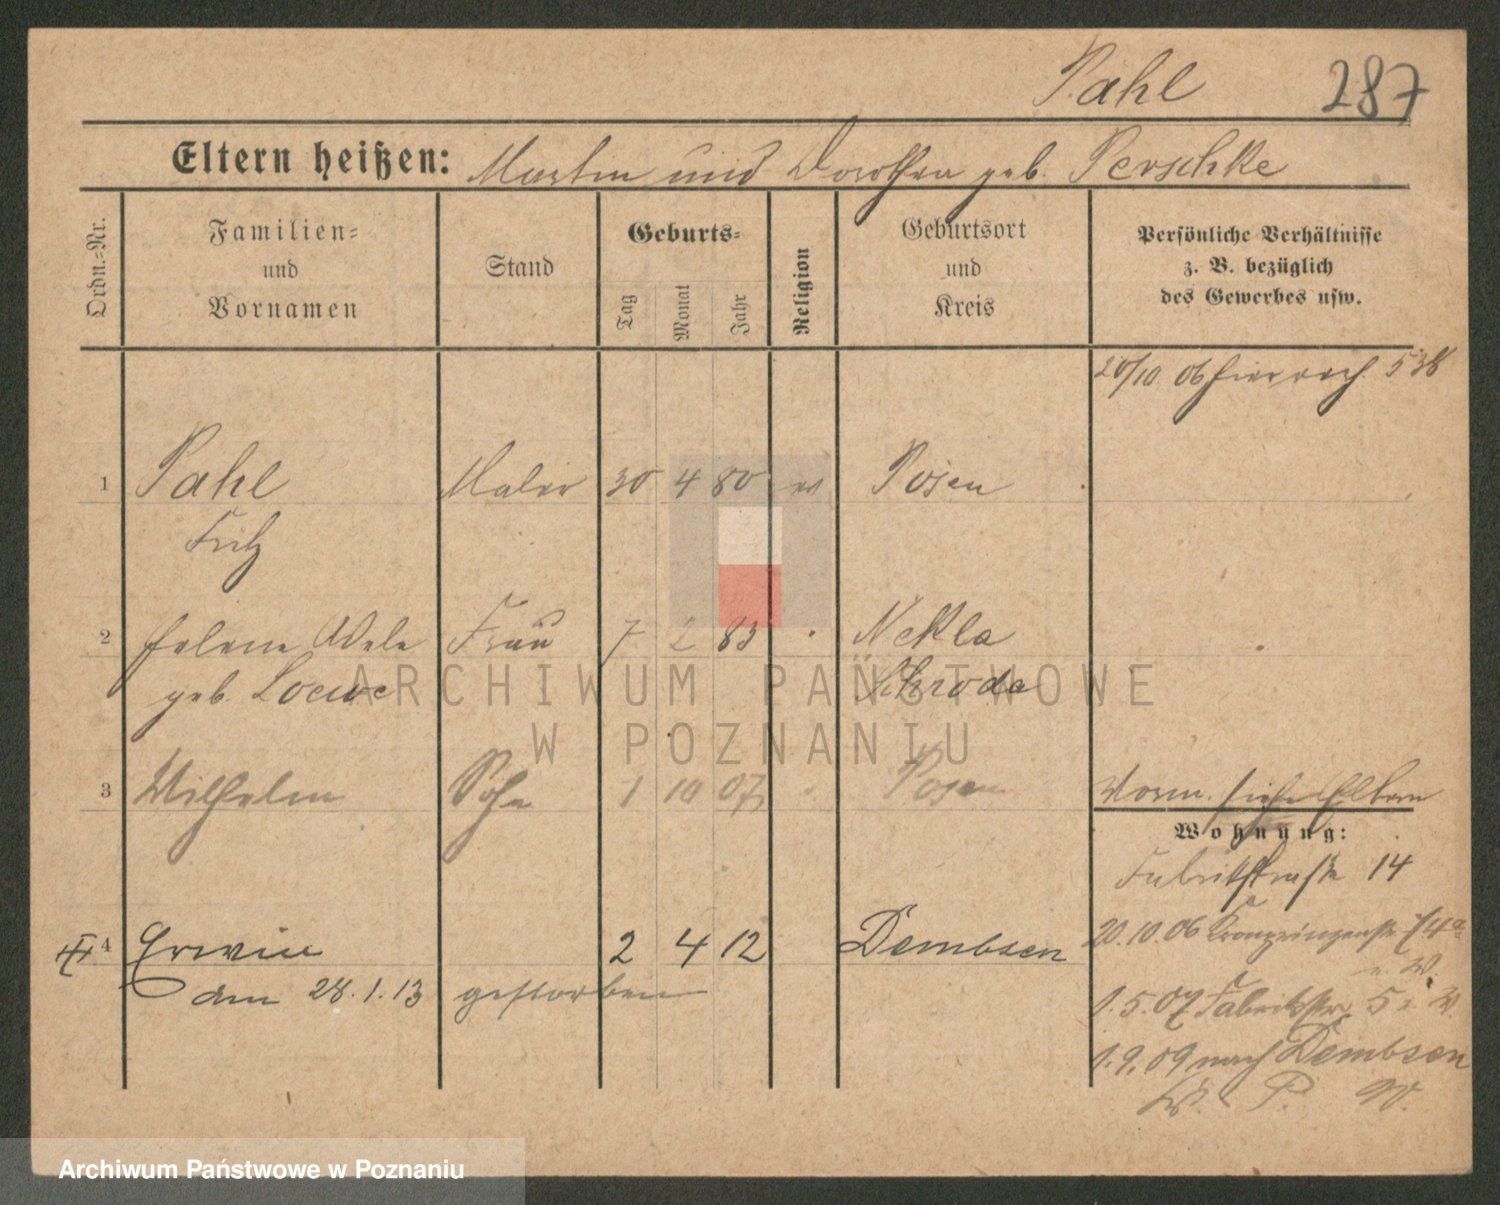 Pahl 287
Eltern heißen: Martin und Dorothea geb. Perschke
Ordn.=Nr.
Familien=
und
Vornamen
Stand
Geburts=
Tag
Monat
Jahr
Religion
Geburtsort
und
Kreis
Persönliche Verhältnisse
z. B. bezüglich
des Gewerbes usw.
20/10 06 538
1 Pahl Maler 30 4 80 ev Posen
Fritz
2 Helene Adele Frau 7 2 83 Nekla
geb. Loewe Schroda
3 Wilhelm Sohn 1 10 07 Posen
Vorm. siehe Eltern
Wohnung:
Fabrikstraße 14
4 Erwin 2 4 12 Dembsen
am 28.1.13 gestorben
20.10.06 Kronprinzenstr
1.5.07 Fabrikstr 5
1.9.09 nach Dembsen
ARCHIWUM PAŃSTWOWE
W POZNANIU
Archiwum Państwowe w Poznaniu